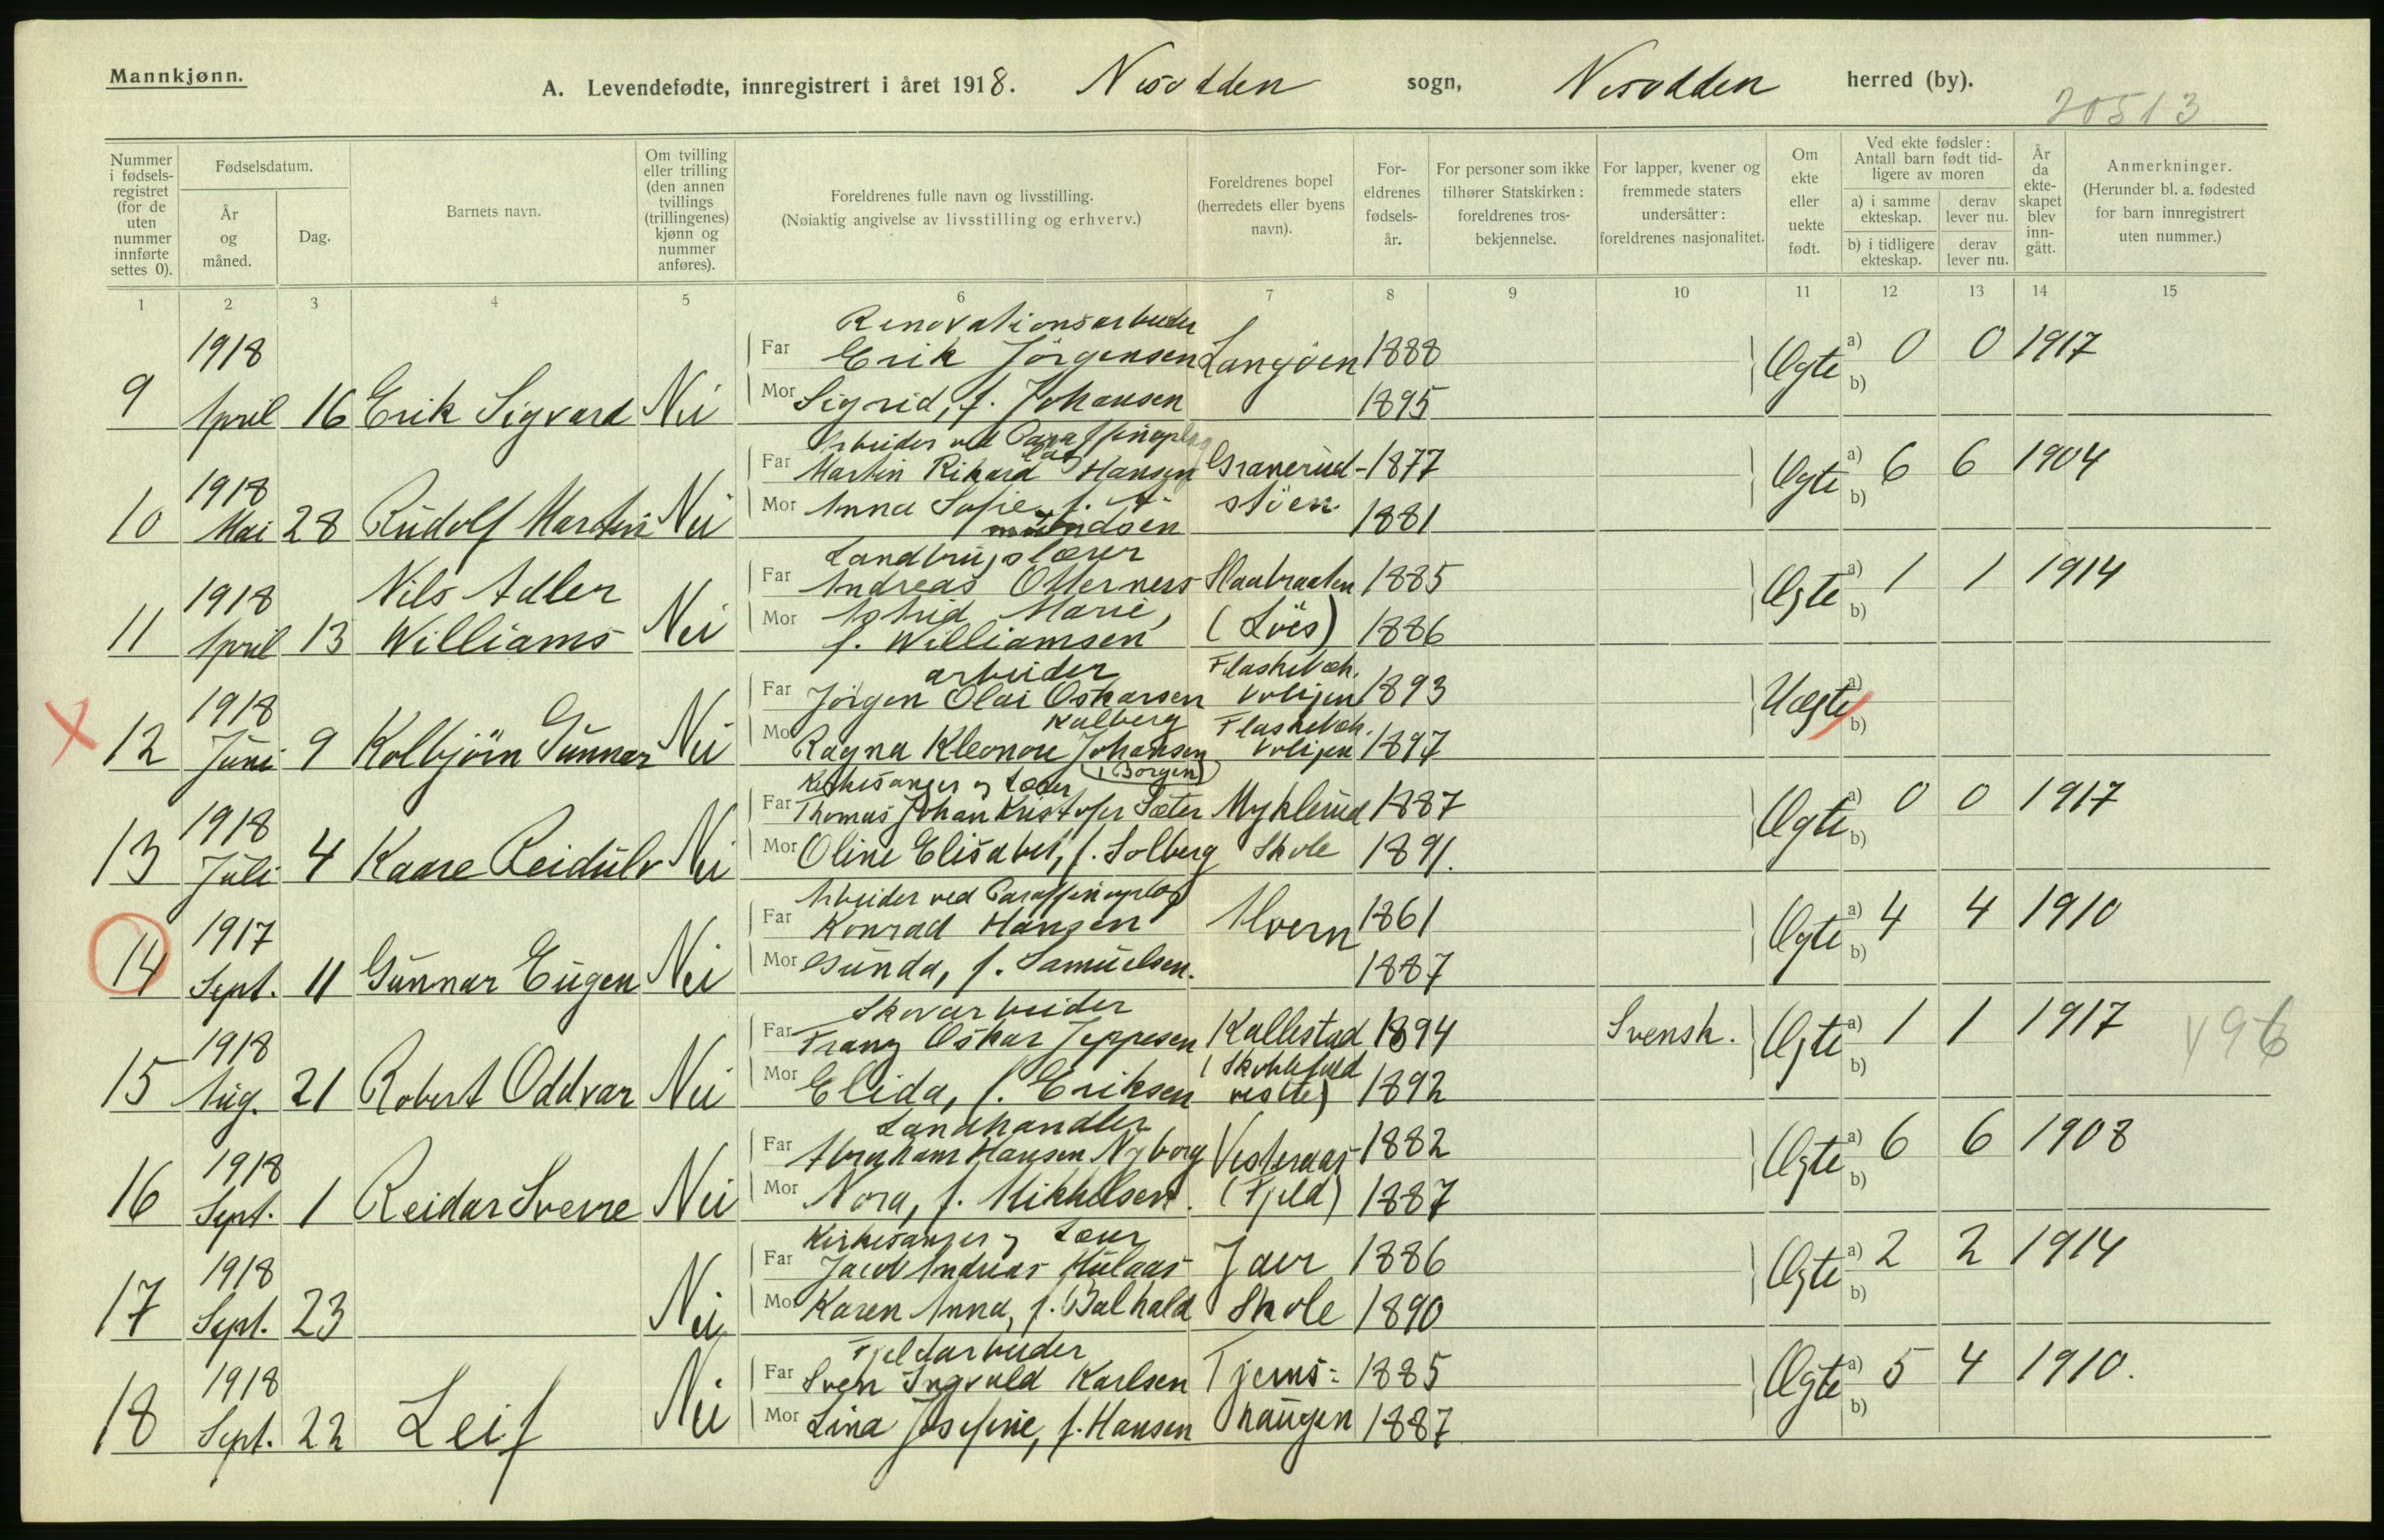 Mannkjønn.
A. Levendefødte, innregistrert i året 1918. Nesodden sogn, Nesodden herred (by).
20513
Nummer i fødsels-registret (for de uten nummer innførte settes 0).
Fødselsdatum.
År og måned.
Dag.
Barnets navn.
Om tvilling eller trilling (den annen tvillings (trillingenes) kjønn og nummer anføres).
Foreldrenes fulle navn og livsstilling.
(Nøiaktig angivelse av livsstilling og erhverv.)
Foreldrenes bopel (herredets eller byens navn).
For-eldrenes fødsels-år.
For personer som ikke tilhører Statskirken: foreldrenes tros-bekjennelse.
For lapper, kvener og fremmede staters undersåtter: foreldrenes nasjonalitet.
Om ekte eller uekte født.
Ved ekte fødsler: Antall barn født tid-ligere av moren
a) i samme ekteskap.
derav lever nu.
b) i tidligere ekteskap.
derav lever nu.
År da ekte-skapet blev inn-gått.
Anmerkninger.
(Herunder bl. a. fødested for barn innregistrert uten nummer.)
1 2 3 4 5 6 7 8 9 10 11 12 13 14 15
Renovationsarbeider
1918 Far Erik Jörgensen Langöen 1888 Ægte a) 0 0 1917
9 April 16 Erik Sigvard Nei Mor Sigrid, f. Johansen 1895 b)
Arbeider ved Paraffinoplag
1918 Far Martin Rikard Hansen Granerud- 1877 Ægte a) 6 6 1904
10 Mai 28 Rudolf Martin Nei Mor Anna Sofie f. A- stöen 1881 b)
mundsen
Landbrugslærer
1918 Nils Adler Far Andreas Otternes Flaatraaten 1885 Ægte a) 1 1 1914
11 April 13 Williams Nei Mor Astrid Marie, (Löes) 1886 b)
f. Williamsen
arbeider Flaskebæk.
1918 Far Jörgen Olai Oskarsen 1893 Uægte a)
Kalberg Flaskebæk.
12 Juni 9 Kolbjörn Gunnar Nei Mor Ragna Kleonore Johansen 1897 b)
(Borgen)
Kirkesanger og Lærer
1918 Far Thomas Johan Kristofer Sæter Myklerud 1887 Ægte a) 0 0 1917
13 Juli 4 Kaare Reidulv Nei Mor Oline Elisabet, f. Solberg Skole 1891. b)
Arbeider ved Paraffinoplag
1917 Far Konrad Hansen Alvern 1861 Ægte a) 4 4 1910
14 Sept. 11 Gunnar Eugen Nei Mor Gunda, f. Samuelsen. 1887 b)
Skovarbeider
1918 Far Franz Oskar Jeppesen Kallestad 1894 Svensk. Ægte a) 1 1 1917
15 Aug. 21 Robert Oddvar Nei Mor Elida, f. Eriksen 1892 b)
Landhandler
1918 Far Abraham Hansen Nyborg Vesteraas 1882 Ægte a) 6 6 1908
16 Sept. 1 Reidar Sverre Nei Mor Nora, f. Mikkelsen. (Fjeld) 1887 b)
Kirkesanger og Lærer
1918 Far Jacob Andreas Hulaas Jaer 1886 Ægte a) 2 2 1914
17 Sept. 23 Nei Mor Karen Anna, f. Balhald Skole 1890 b)
Fjeldarbeider
1918 Far Sven Ingvald Karlsen Tjerns- 1885 Ægte a) 5 4 1910.
18 Sept. 22 Leif Nei Mor Lina Josefine, f. Hansen haugen 1887 b)